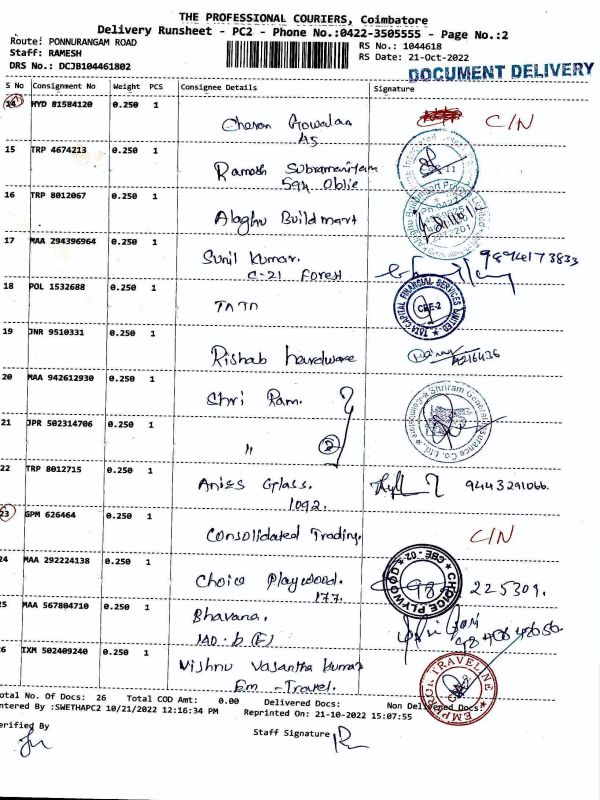 THE PROFESSIONAL COURIERS, Coimbatore
Delivery Runsheet - PC2 - Phone No.:0422-3505555 - Page No.:2
Route: PONNURANGAM ROAD
Staff: RAMESH
DRS No.: DCJB104461802
RS No.: 1044618
RS Date: 21-Oct-2022
DOCUMENT DELIVERY
S No Consignment No Weight PCS Consignee Details Signature
14 HYD 81584120 0.250 1
Cheran Gowalan C/N
A5
15 TRP 4674213 0.250 1
Ramesh Subramaniyam
16 TRP 8012067 0.250 1
Alaghu Buildmart
17 MAA 294396964 0.250 1
Sunil Kumar. 9894173833
C-21 Forest
18 POL 1532688 0.250 1
TATA
TATA CAPITAL FINANCIAL SERVICES LIMITED
CBE-2
19 JNR 9510331 0.250 1
Rishab hardware
20 MAA 942612930 0.250 1
Shri Ram.
Shriram General Insurance Co. Ltd.
21 JPR 502314706 0.250 1
" 2
22 TRP 8012715 0.250 1
Aniss Glass. 9443291066.
1092.
23 GPM 626464 0.250 1
Consolidated Trading. C/N
24 MAA 292224138 0.250 1
Choice Playwood. 98 225309.
177.
CHOICE PLYWOOD CBE - 02
25 MAA 567804710 0.250 1
Bhavana.
MO.b (F)
26 IXM 502409240 0.250 1
Vishnu Vasantha Kumar
Em - Travel.
EMPEROR TRAVELINE
Total No. Of Docs: 26 Total COD Amt: 0.00 Delivered Docs: Non Delivered Docs:
Entered By :SWETHAPC2 10/21/2022 12:16:34 PM Reprinted On: 21-10-2022 15:07:55
Verified By Staff Signature